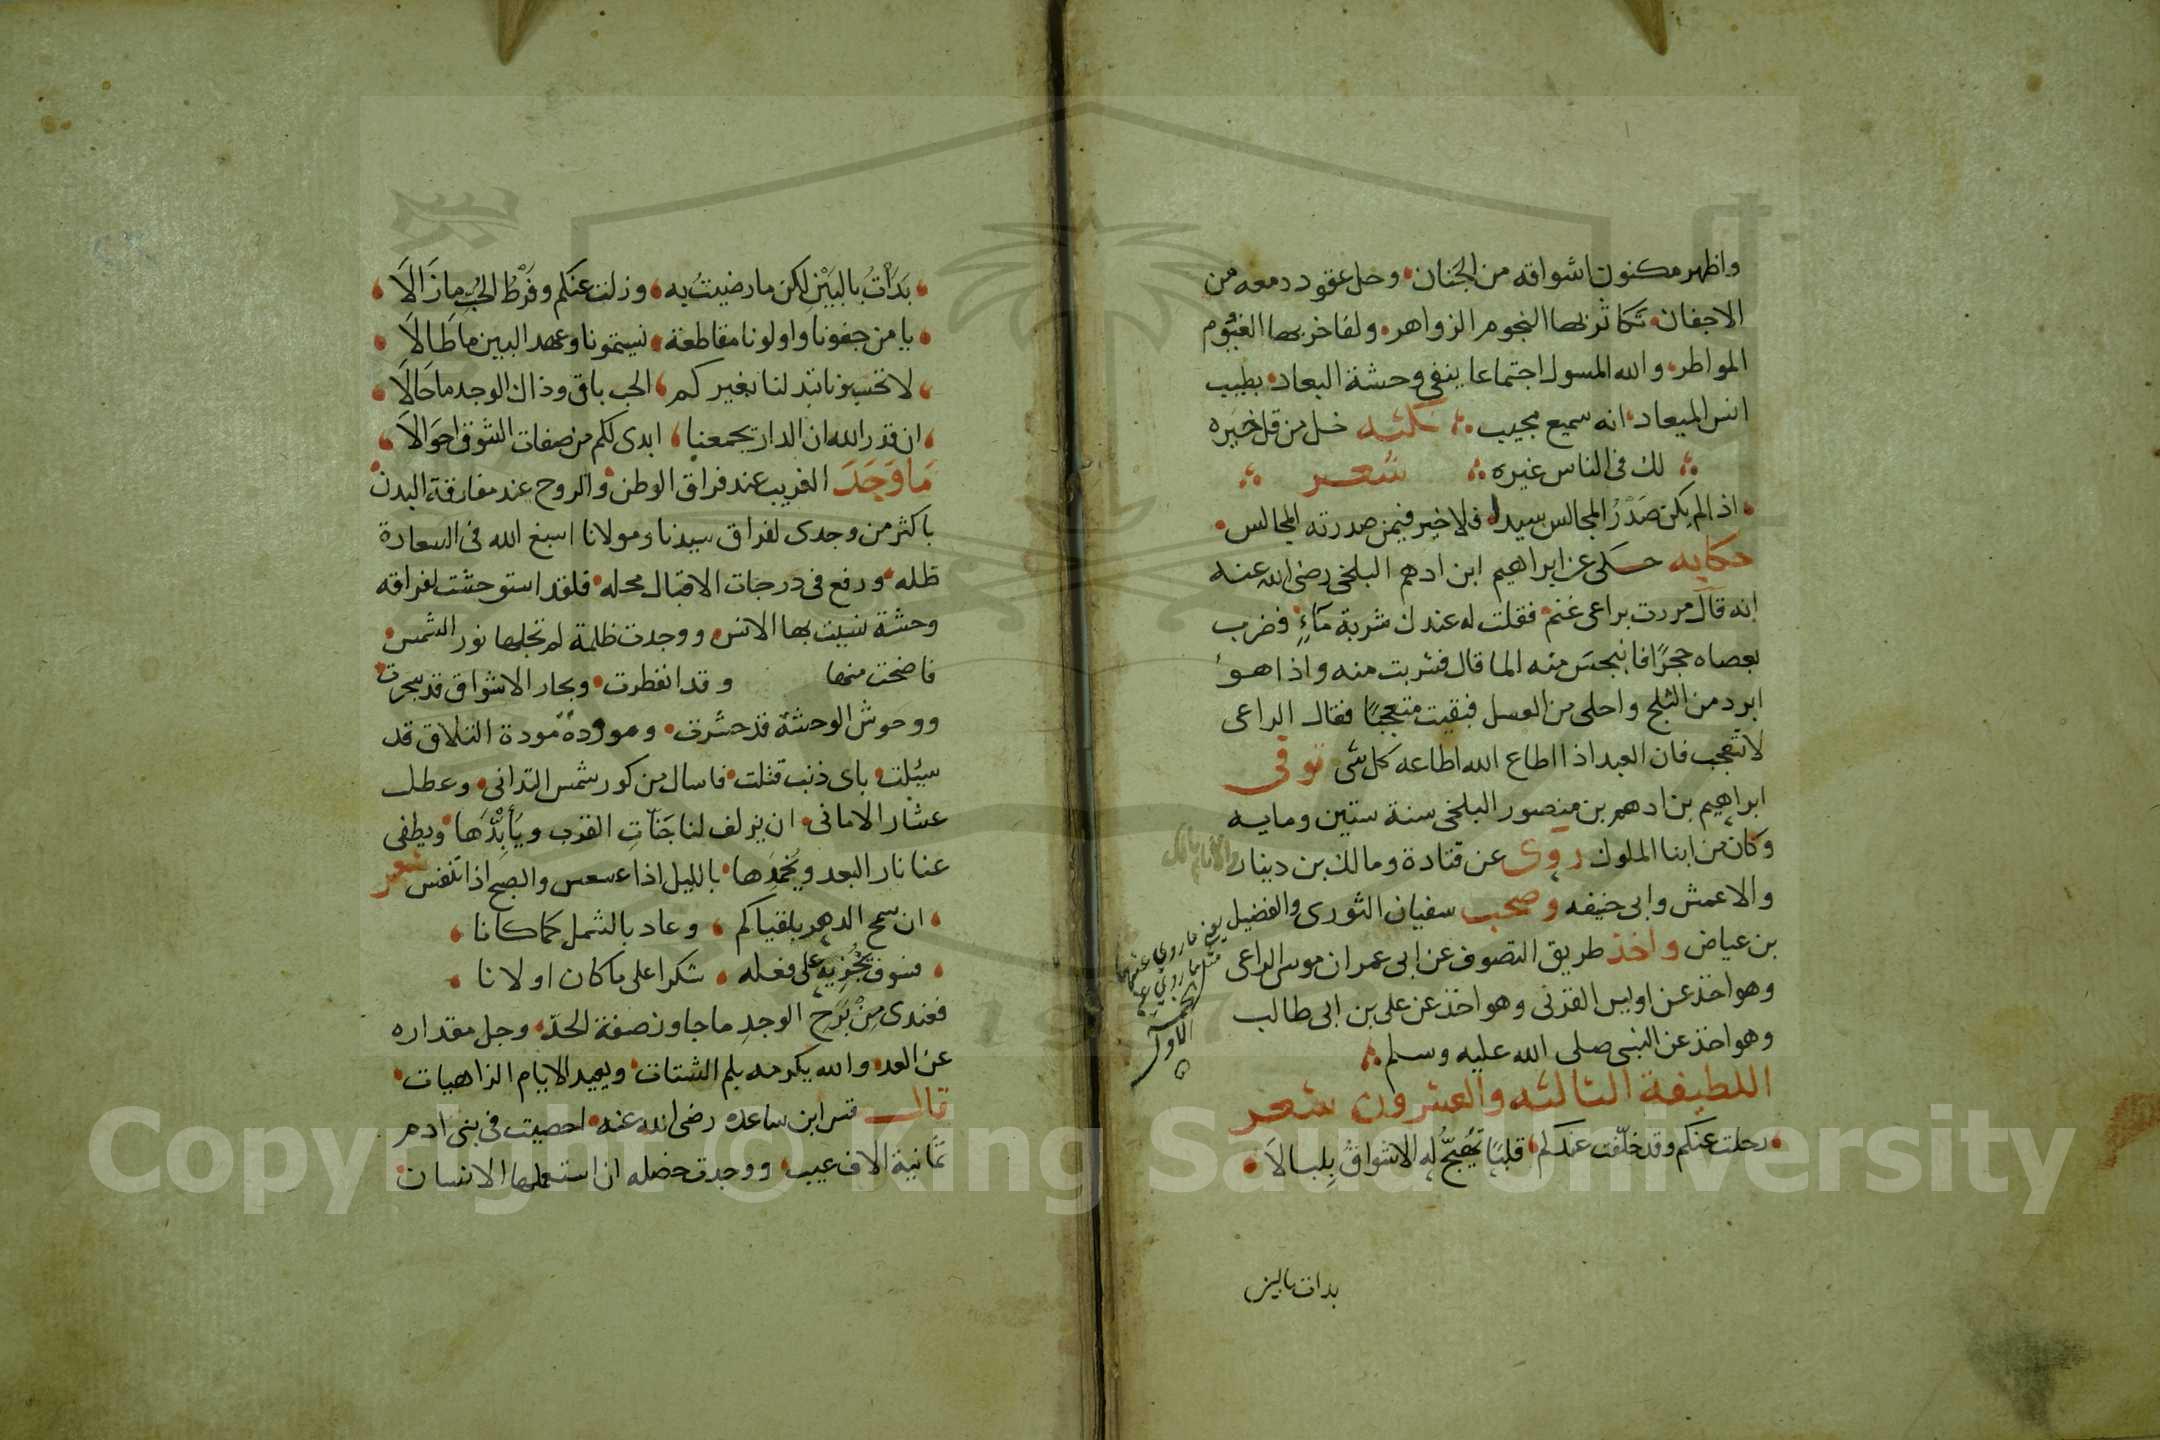 واظهر مكنون اشواقه من الجنان وحل عقود دمعه من
الاجفان تكاثر بها النجوم الزواهر ولفاخر بها الغيوم
المواطر والله المسول اجتماعا ينفي وحشة البعاد بطيب
انس الميعاد انه سميع مجيب نكته خل من قل خيره
لك في الناس غيره شعر
اذا لم يكن صَدْرُ المجالس سيدا فلا خير فيمن صدرته المجالس
حكايه حكى عن ابراهيم ابن ادهم البلخي رضى الله عنه
انه قال مررت براعى غنم فقلت له عندك شربة مَاءٍ فضرب
بعصاه حجرًا فانبجسَ منه الما قال فشربت منه واذا هو
ابرد من الثلج واحلى من العسل فبقيت متعجبًا فقال الراعى
لا تتعجب فان العبد اذا اطاع الله اطاعه كل شى توفى
ابراهيم بن ادهم بن منصور البلخي سنة ستين ومايه
وكان من ابنا الملوك روى عن قتادة ومالك بن دينار
والاعمش وابى حنيفه وصحب سفيان الثورى والفضيل
بن عياض واخذ طريق التصوف عن ابى عمران موسى الراعى
وهو اخذ عن اويس القرنى وهو اخذ عن على بن ابى طالب
وهو اخذ عن النبى صلى الله عليه وسلم
اللطيفة الثالثه والعشرون شعر
رحلت عنكم وقد خلّفت عندكم قلبًا تهيّجُ له الاشواقُ بلبالاَ
بدات بالبين
يعنى ما روى عنهما
مثل ما روي عن
الاول
بَدَأتُ بالبَيْنِ لكن ما رضيتُ به وزلت عنكم وفَرْطُ الحُبِ ما زَالاَ
يا من جفونا واولونا مقاطعة نسيتمونا وعهد البين ما طَالاَ
لا تحسبونا تبدلنا بغيركم الحب باقى وذاك الوجد ما حَالاَ
ان قدر الله ان الدار تجمعنا ابدى لكم من صفات الشوق احوَالاَ
مَا وَجَدَ الغريب عند فراق الوطن والروح عند مفارقة البدن
باكثر من وجدى لفراق سيدنا ومولانا اسبغ الله فى السعادة
ظله ورفع فى درجات الاقبال محله فلقد استوحشت لفراقه
وحشة نسيت بها الانس ووجدت ظلمة لم تجلها نور الشمس
فاضحت منها وقد انفطرت وبحار الاشواق قد سجرت
ووحوش الوحشة قد حشرت وموودة مودة التلاق قد
سيُلت باى ذنب قتلت فاسال من كور شمس التدانى وعطل
عشار الامانى ان يزلف لنا جَنّاتِ القرب ويَأبِّدَها ويطفى
عنا نار البعد ويُخْمِدَها بالليل اذا عسعس والصبح اذا تنفس شعر
ان سمح الدهر بلقياكم وعاد بالشمل كما كانا
فسوف نَجْزِيهِ على فعله شكرا على ما كان اولانا
فعندى مِنْ بَرَحِ الوجدِ ما جاوز صفة الحدّ وجل مقداره
عن العد والله بكرمه يلم الشتات ويعيد الايام الزاهيات
قال قس ابن ساعده رضى الله عنه احصيت فى بنى ادم
ثمانية الاف عيب ووجدت خصله ان استعملها الانسان
Copyright © King Saud University
1957